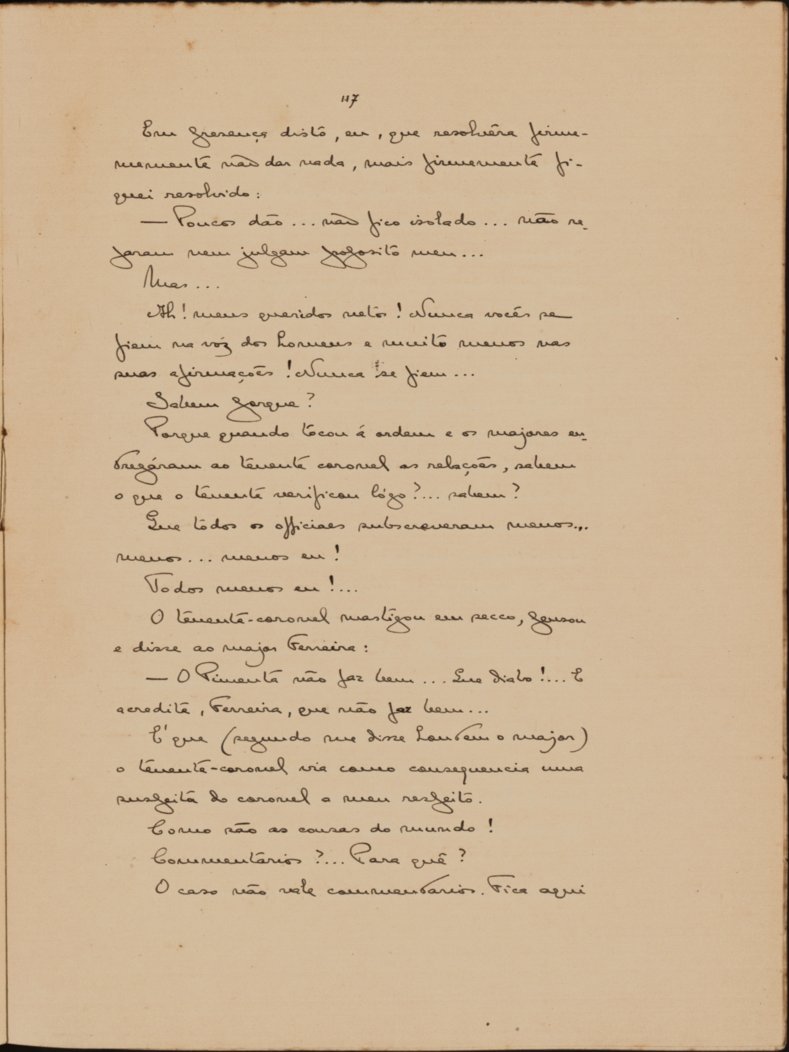 117
Em presença disto, eu, que resolvêra firme-
memente não dar nada, mais firmemente fi-
quei resolvido:
— Poucos dão... não fico isolado... não re-
param nem julgam proposito meu...
Mas...
Ah! meus queridos netos! Nunca vocês se
fiem na vóz dos homens e muito menos nas
suas afirmações! Nunca se fiem...
Sabem porque?
Porque quando tocou á ordem e os majores en-
tregáram ao tenente coronel as relações, sabem
o que o tenente verificou lógo?... sabem?
Que todos os officiaes subscreveram menos...
menos... menos eu!
Todos menos eu!...
O tenente-coronel mastigou em secco, pensou
e disse ao major Ferreira:
— O Pimenta não faz bem... Que diabo!... E
acredita, Ferreira, que não faz bem...
E' que (segundo me disse hontem o major)
o tenente-coronel via como consequencia uma
suspeita do coronel a meu respeito.
Como são as cousas do mundo!
Commentarios?... Para quê?
O caso não vale commentarios. Fica aqui